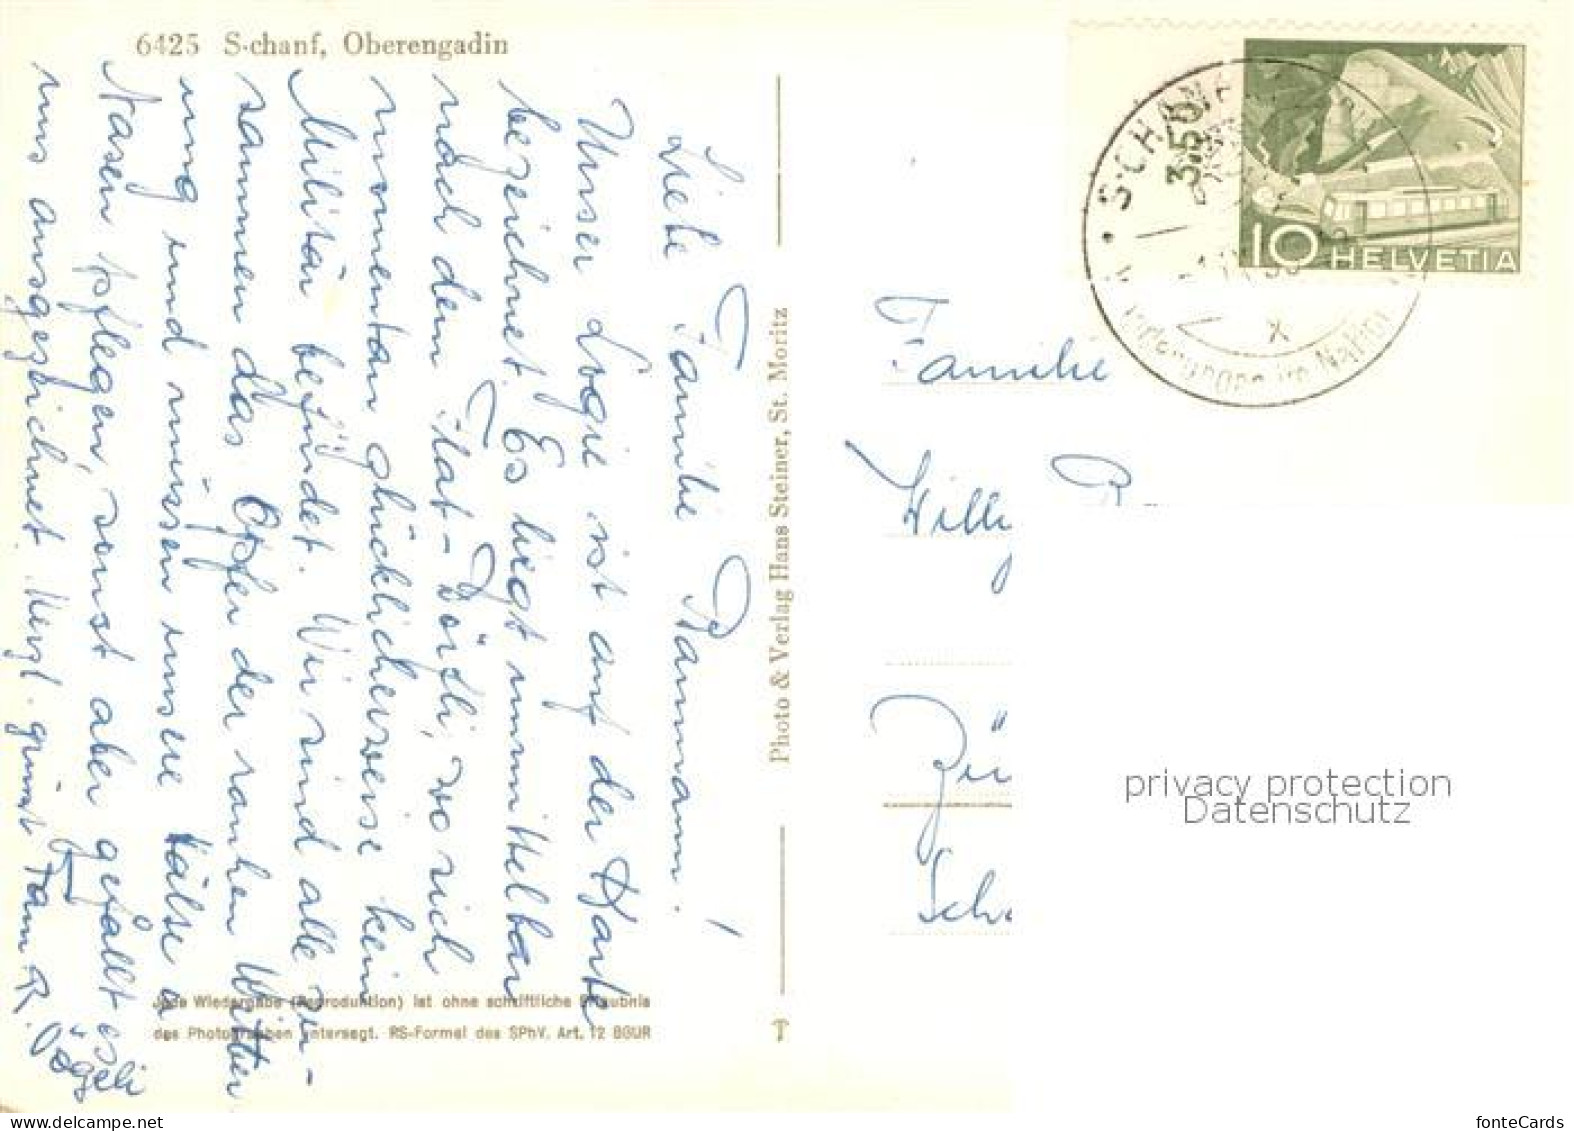 6425 S-chanf, Oberengadin
Liebe Familie Rammann!
Unser Logie ist auf der Karte
bezeichnet. Es liegt unmittelbar
nach dem Flat-Dörfli, wo sich
momentan glücklicherweise kein
Militär befindet. Wir sind alle zu-
sammen das Opfer der rauhen Witter
ung und müssen unsere Hälse u
Nasen pflegen, sonst aber gefällt es
uns ausgezeichnet. Herzl. grüsst Fam R. Vögeli
Photo & Verlag Hans Steiner, St. Moritz
Jede Wiedergabe (Reproduktion) ist ohne schriftliche Erlaubnis
des Photographen untersagt. RS-Formel des SPhV. Art. 12 BGUR
S-CHANF
350
10 HELVETIA
Familie
Willy
Zü
Sch
privacy protection
Datenschutz
fonteCards